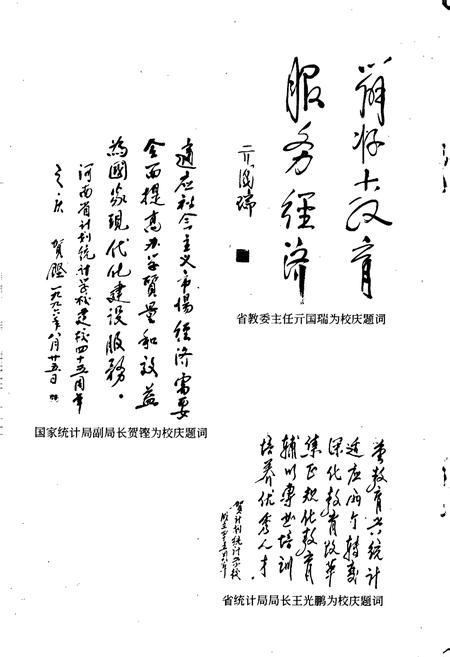 办好教育
服务经济
亓国瑞
省教委主任亓国瑞为校庆题词
适应社会主义市场经济需要
全面提高办学质量和效益
为国家现代化建设服务。
河南省计划统计学校建校四十五周年
之庆
贺铿 一九九六年八月廿五日
国家统计局副局长贺铿为校庆题词
适应两个转变
深化教育改革
集正规化教育
辅以专业培训
培养优秀人才
贺计划统计学校
省统计局局长王光鹏为校庆题词